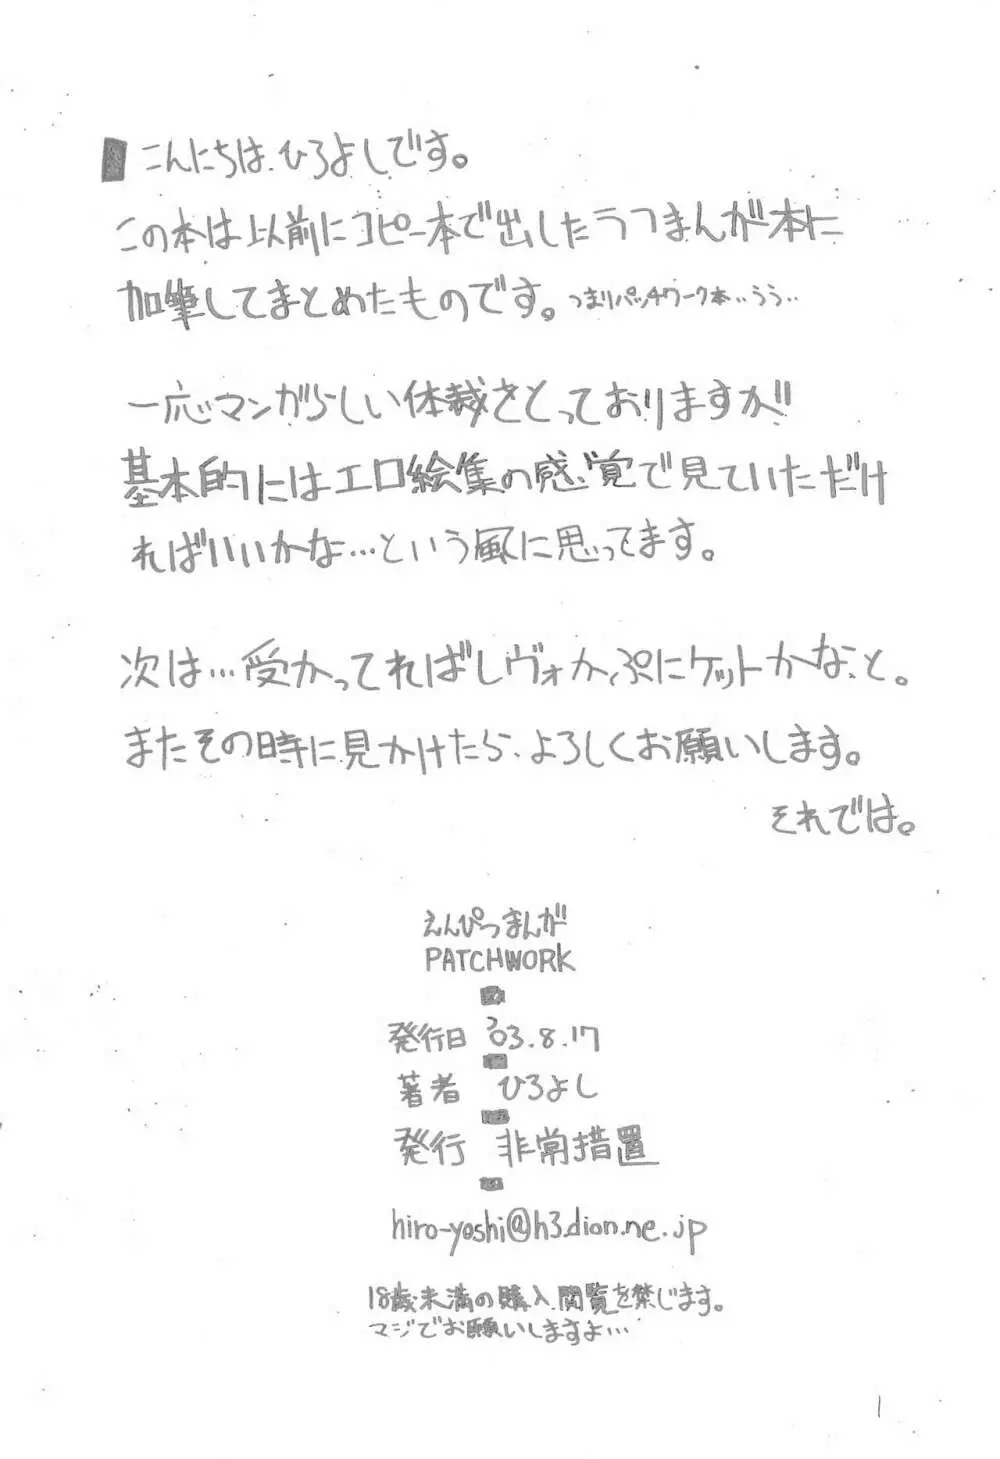 こんにちは、ひろよしです。
この本は以前にコピー本で出したラフまんが本に
加筆してまとめたものです。つまりパッチワーク本‥うう‥
一応マンがらしい体裁をとっておりますが
基本的にはエロ絵集の感覚で見ていただけ
ればいいかな…という風に思ってます。
次は…受かってればレヴォかぷにケットかな、と。
またその時に見かけたら、よろしくお願いします。
それでは。
えんぴつまんが
PATCHWORK
発行日 '03.8.17
著者 ひろよし
発行 非常措置
hiro-yoshi@h3.dion.ne.jp
18歳未満の購入、閲覧を禁じます。
マジでお願いしますよ…
1